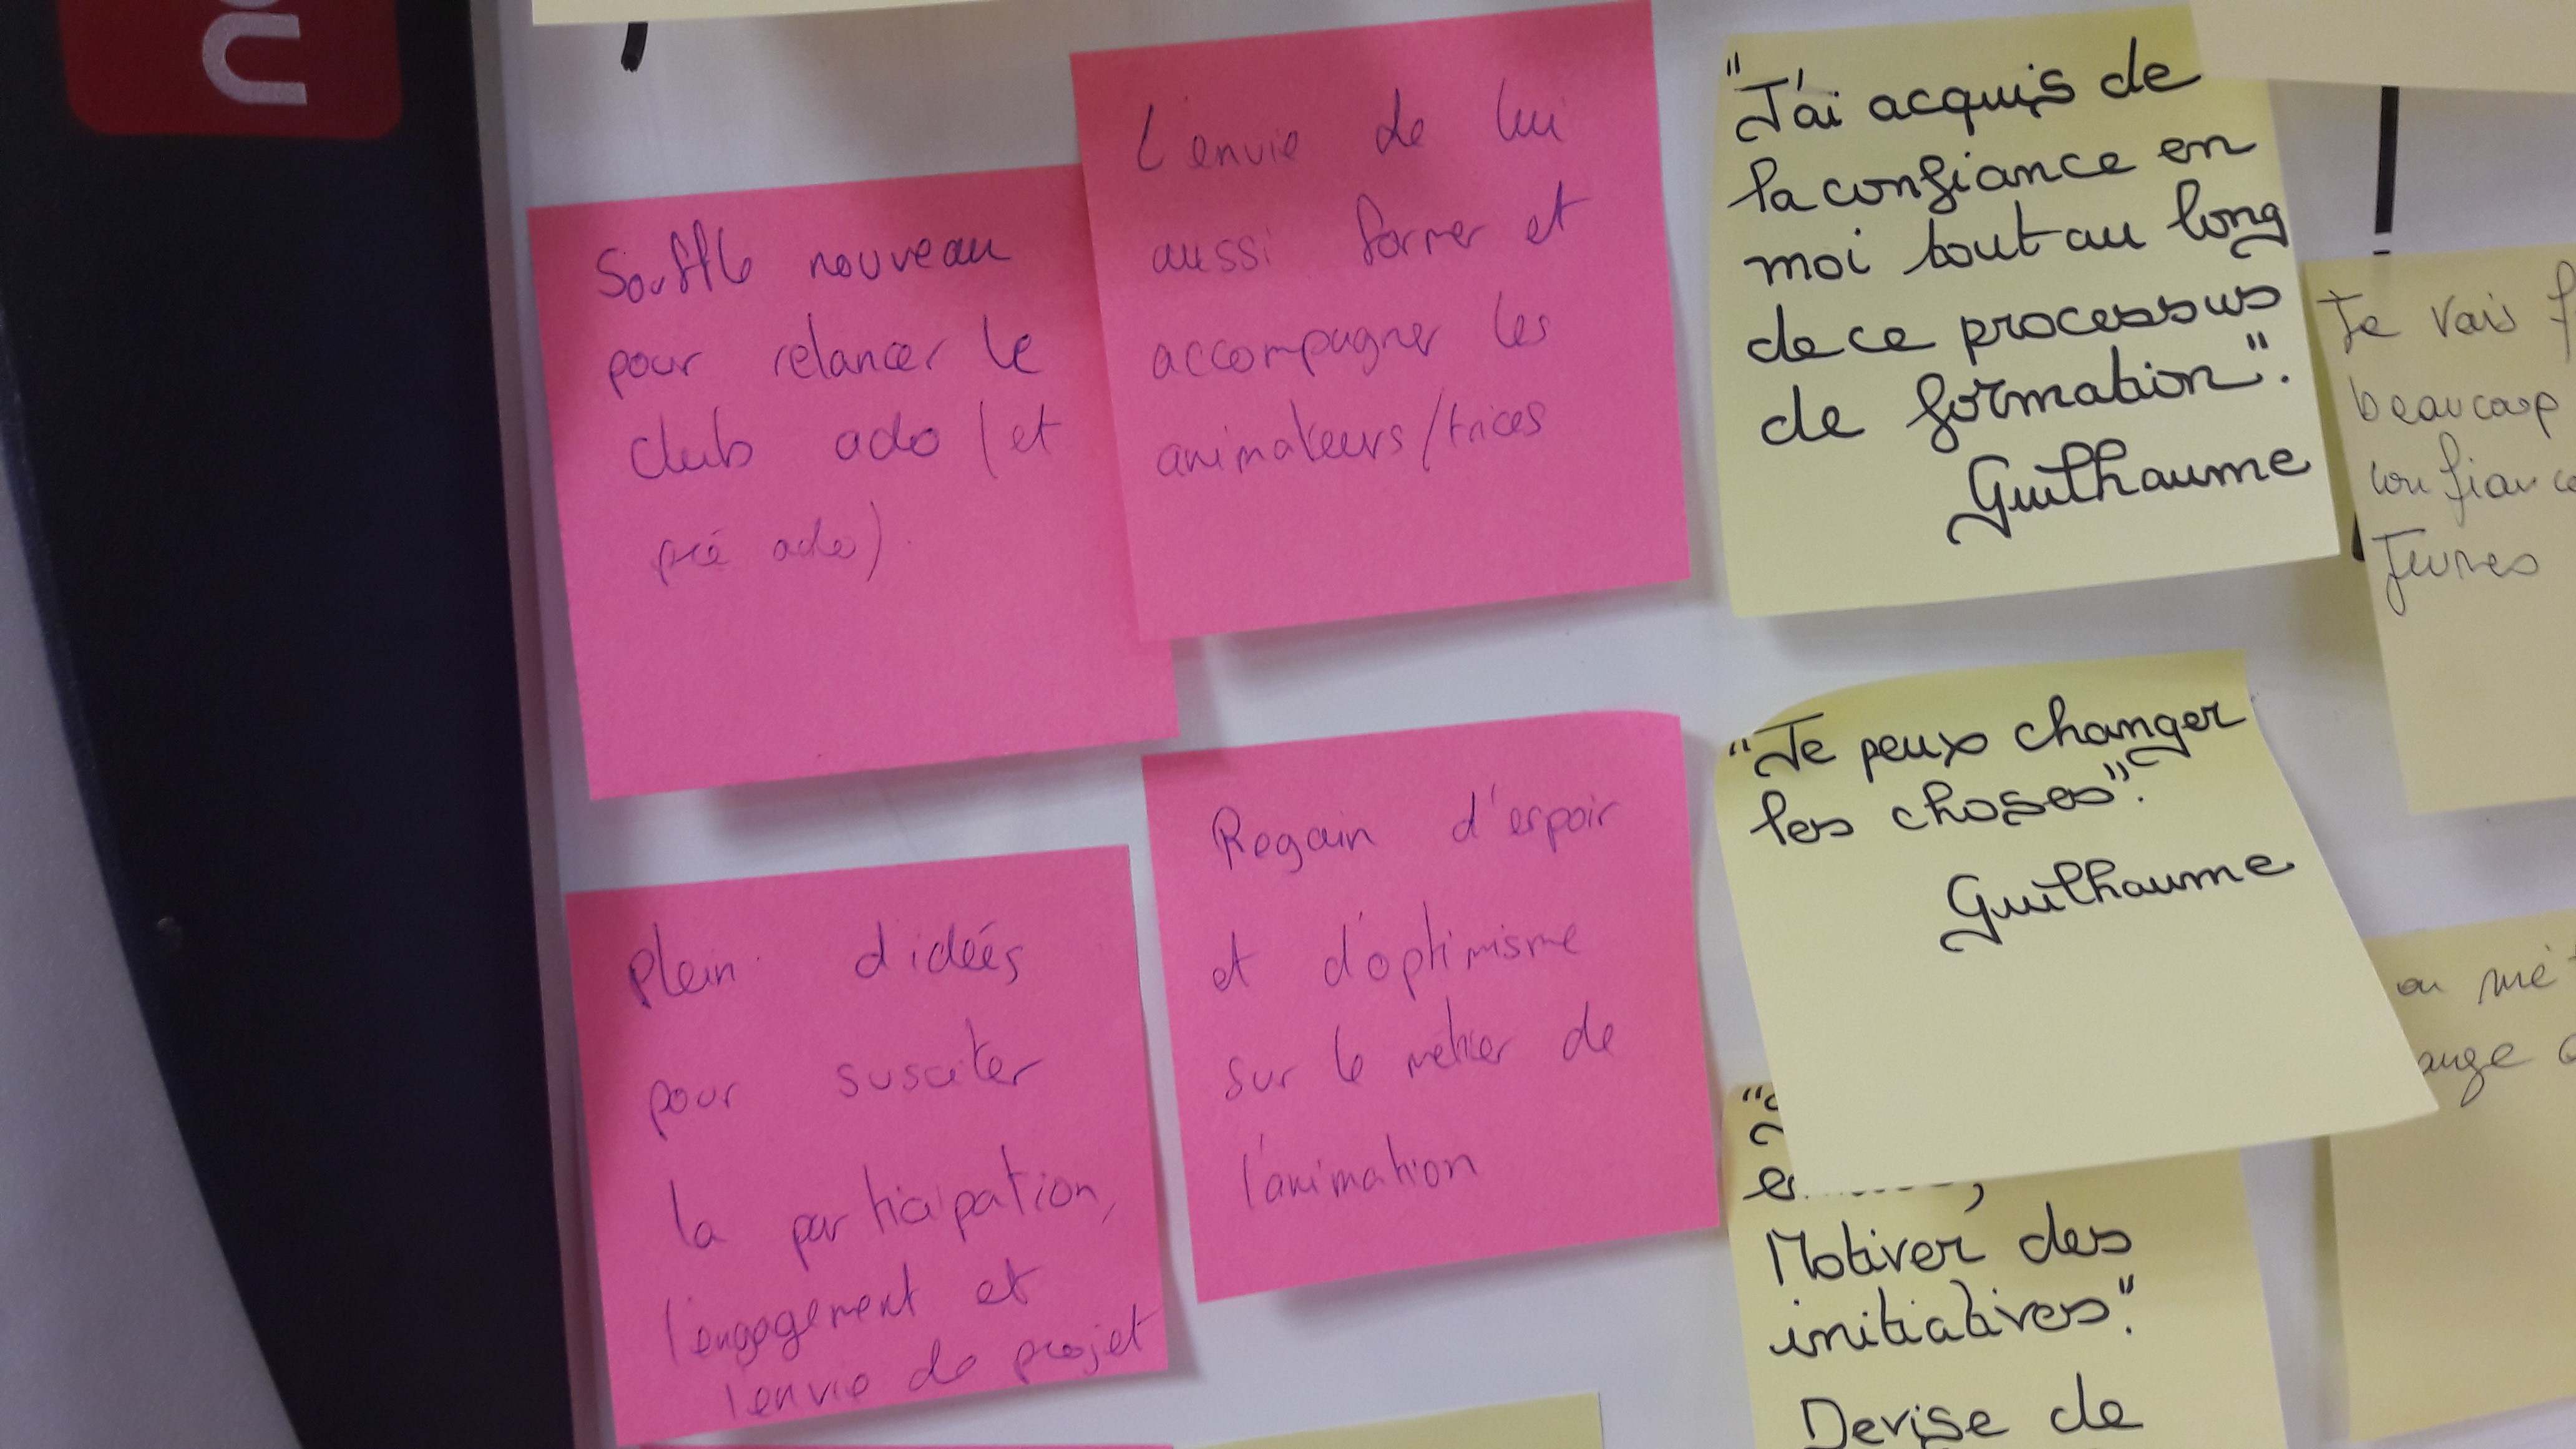 Souffle nouveau
pour relancer le
club ado (et
pré ado).
L'envie de lui
aussi former et
accompagner les
animateurs/trices
"J'ai acquis de
la confiance en
moi tout au long
de ce processus
de formation".
Guilhaume
Je vais
beaucoup
confiance
Jeunes
Plein d'idées
pour susciter
la participation,
l'engagement et
l'envie de projet
Regain d'espoir
et d'optimisme
sur le métier de
l'animation
"Je peux changer
les choses".
Guilhaume
Motiver des
initiatives".
Devise de